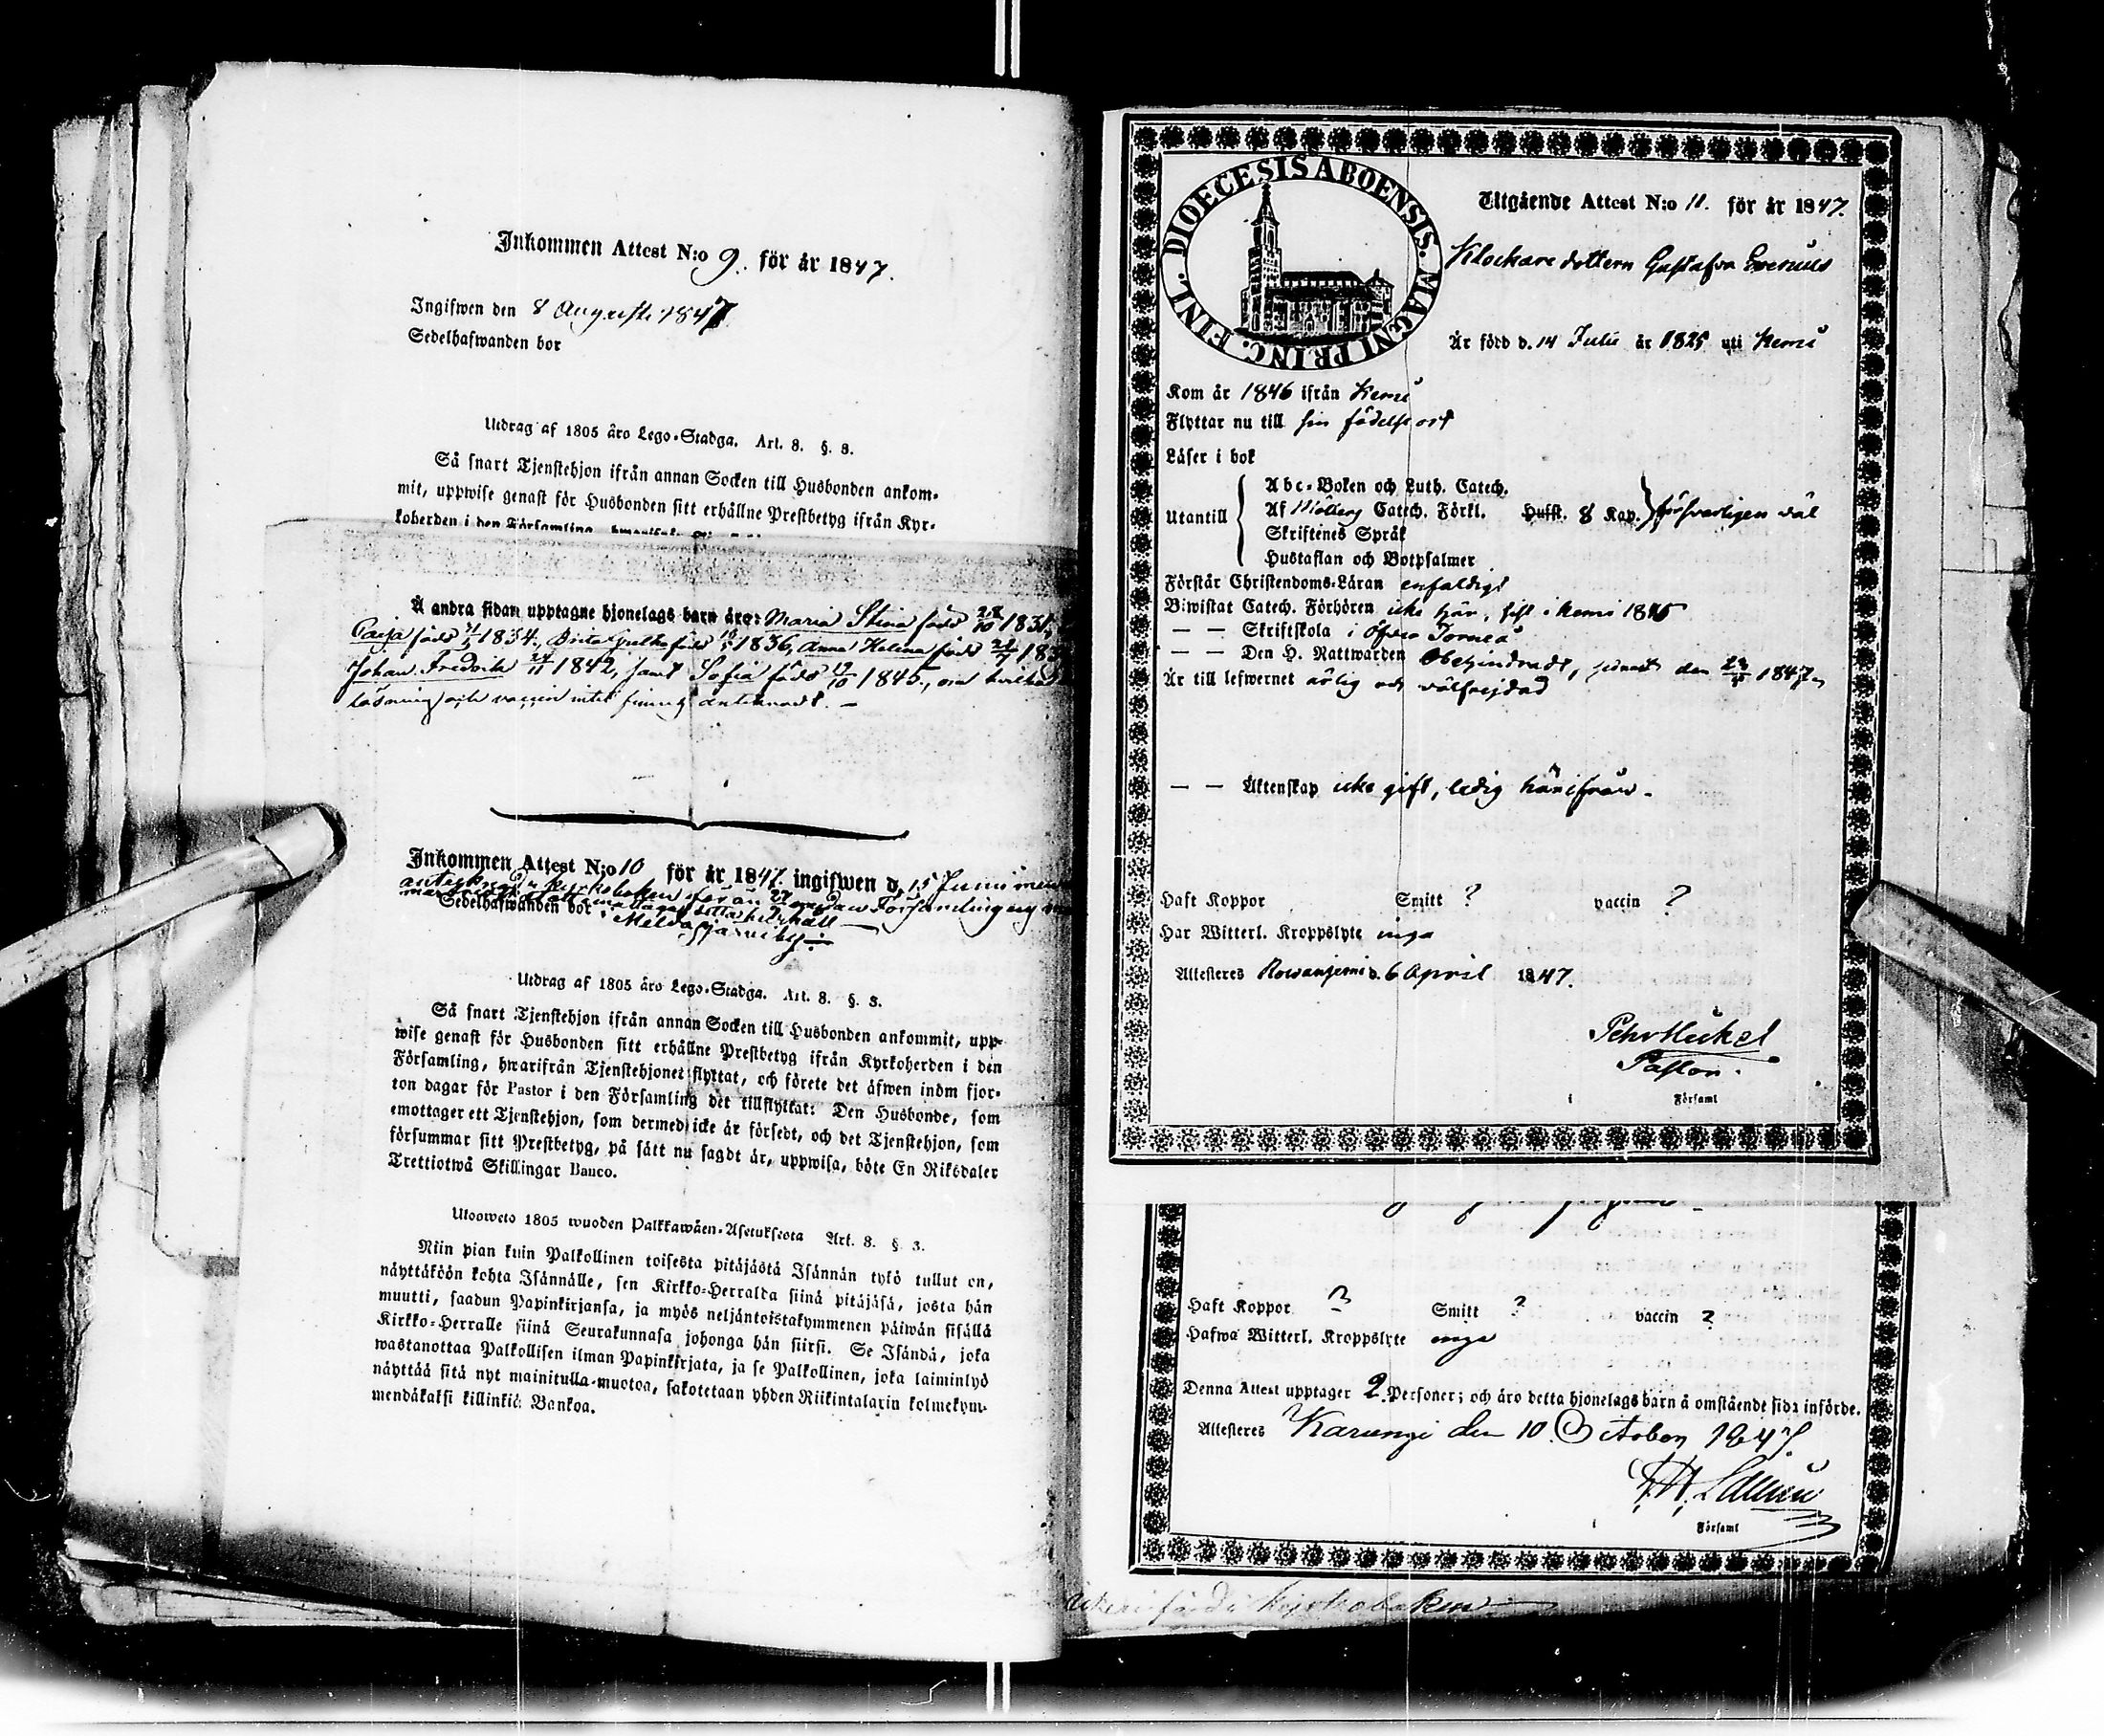 Inkommen Attest N:o 9. för år 1847.
Ingifwen den 8 Augusti 1847
Sedelhafwanden bor
Utdrag af 1805 års Lego-Stadga. Art. 8. §. 8.
Så snart Tjenstehjon ifrån annan Socken till Husbonden ankom-
mit, uppwise genast för Husbonden sitt erhållne Prestbetyg ifrån Kyr-
koherden i den Församling,
Å andra sidan upptagne hjonelags barn äro: Maria Stina född 28/10 1831,
Caisa född 1834, Brita född 1836, Anna Helena född
Johan Fredrik 24/11 1842, samt Sofia född 19/10 1845, om hvilkas
läsning och vaccin intet finnes antecknadt. –
Inkommen Attest N:o 10 för år 1847. ingifwen d. 15 Junii
Sedelhafwanden bor
Utdrag af 1805 års Lego-Stadga. Art. 8. §. 8.
Så snart Tjenstehjon ifrån annan Socken till Husbonden ankommit, upp-
wise genast för Husbonden sitt erhållne Prestbetyg ifrån Kyrkoherden i den
Församling, hwarifrån Tjenstehjonet flyttat, och förete det äfwen inom fjor-
ton dagar för Pastor i den Församling det tillflyttat: Den Husbonde, som
emottager ett Tjenstehjon, som dermed icke är försedt, och det Tjenstehjon, som
försummar sitt Prestbetyg, på sätt nu sagdt är, uppwisa, böte En Riksdaler
Trettiotwå Skillingar Banco.
Ulosweto 1805 wuoden Palkkawäen-Asetuksesta Art. 8. §. 3.
Niin pian kuin Palkollinen toisesta pitäjästä Isännän tykö tullut on,
näyttäköön kohta Isännälle, sen Kirkko-Herralda siinä pitäjäsä, josta hän
muutti, saadun Papinkirjansa, ja myös neljäntoistakymmenen päiwän sisällä
Kirkko-Herralle siinä Seurakunnasa johonga hän siirsi. Se Isändä, joka
wastanottaa Palkollisen ilman Papinkirjata, ja se Palkollinen, joka laiminlyö
näyttää sitä nyt mainitulla muotoa, sakotetaan yhden Riikintalarin kolmekym-
mendäkaksi killinkiä Bankoa.
DIOECESIS ABOENSIS. MAGNI PRINC. FINL.
Utgående Attest N:o 11. för år 1847.
Klockare dottern Gustafva
Är född d. 14 Julii år 1825 uti Kemi
Kom år 1846 ifrån Kemi
Flyttar nu till sin födelse ort
Läser i bok
Utantill
Abc-Boken och Luth. Catech.
Af Möllers Catech. Förkl. Hufst. 8 Kap. försvarligen väl
Skriftenes Språk
Hustaflan och Botpsalmer
Förstår Christendoms-Läran enfaldigt
Biwistat Catech. Förhören icke här, sist i Kemi 1845
– – Skriftskola i Öfver Torneå
– – Den H. Nattwarden Obehindradt, senast den 1847.
Är till lefwernet ärlig och välfrejdad
– – Äktenskap icke gift, ledig härifrån.
Haft Koppor Smitt ? vaccin ?
Har Witterl. Kroppslyte inga
Attesteres Rovaniemi d. 6 April 1847.
Pehr Heickel
Pastor.
i Församl
Haft Koppor ? Smitt ? vaccin ?
Hafwa Witterl. Kroppslyte inga
Denna Attest upptager 2 Personer; och äro detta hjonelags barn å omstående sida införde.
Attesteres Karungi den 10 October 1847.
i Församl